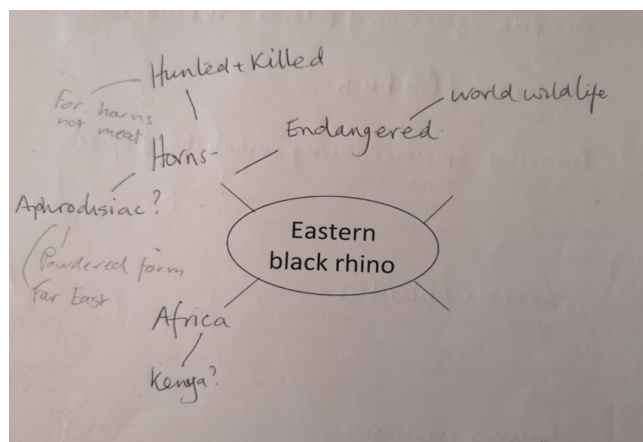 Hunted + Killed
For horns
not meat
world wildlife
Endangered.
Horns-
Aphrodisiac?
Powdered form
Far East
Eastern
black rhino
Africa
Kenya?